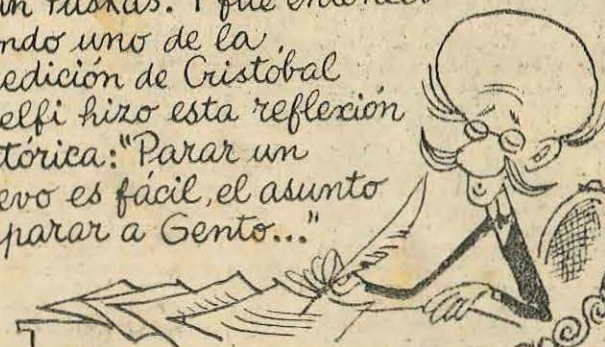 in Puskas. Y fue entonces
ndo uno de la
edición de Cristóbal
elfi hizo esta reflexión
tórica: "Parar un
evo es fácil, el asunto
parar a Gento..."